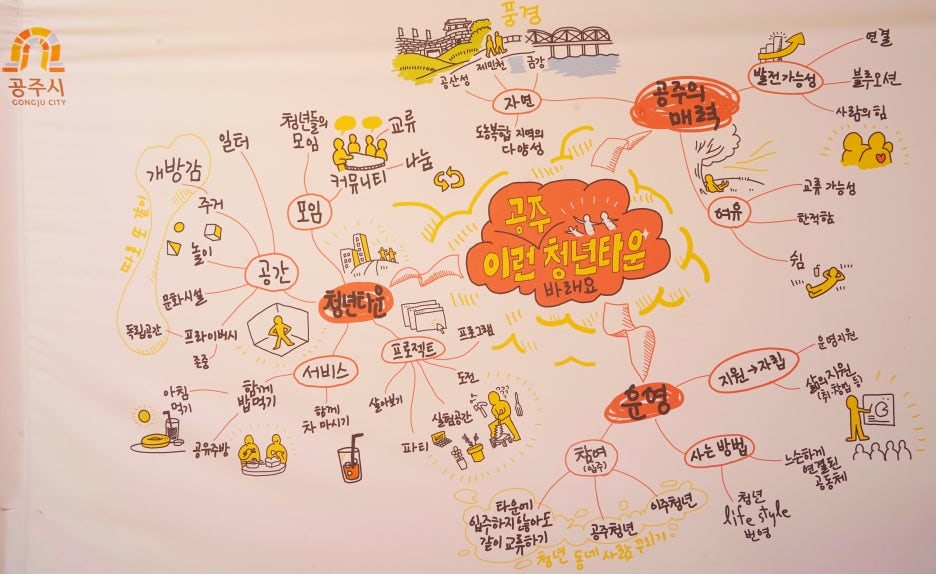 공주시
GONGJU CITY
풍경
공산성
제민천
금강
자연
도농복합 지역의
다양성
공주의
매력
발전가능성
연결
블루오션
사람의 힘
여유
교류 가능성
한적함
쉼
공주
이런 청년타운
바래요
청년타운
모임
청년들의
모임
커뮤니티
교류
나눔
공간
일터
개방감
주거
놀이
문화시설
독립공간
프라이버시
존중
따로 또 같이
서비스
아침
먹기
함께
밥먹기
공유주방
함께
차 마시기
프로젝트
프로그램
도전
실험공간
살아보기
파티
운영
지원→자립
운영지원
삶의 지원
(취·창업 등)
사는 방법
느슨하게
연결된
공동체
청년
life style
반영
참여
(입주)
타운에
입주하지 않아도
같이 교류하기
공주청년
이주청년
청년 동네 사람 꾸리기